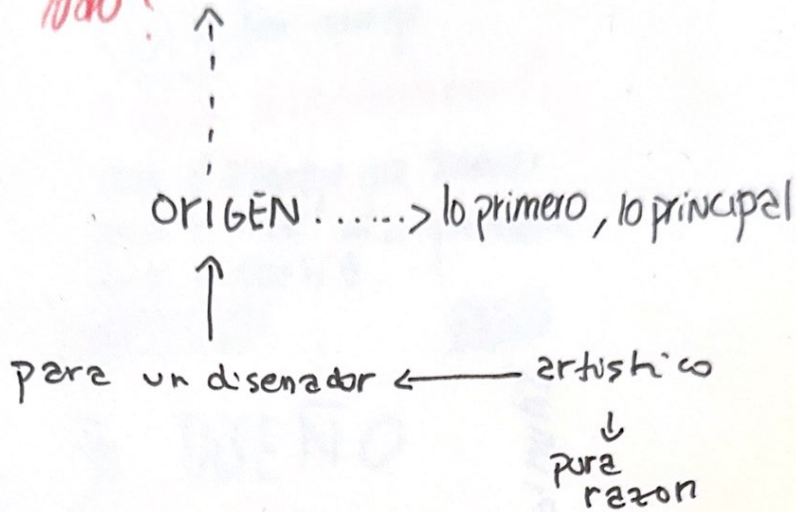 ORIGEN ......> lo primero, lo principal
para un disenador ← artistico
↓
pura
razon